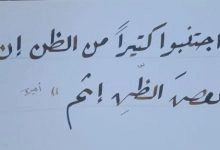 اجتنبوا كثيراً من الظن إن
بعض الظّنِ إثم